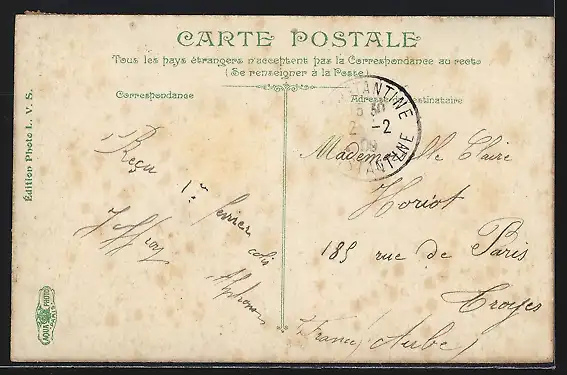 CARTE POSTALE
Tous les pays étrangers n'acceptent pas la Correspondance au recto
(Se renseigner à la Poste)
Correspondance
Adresse du Destinataire
CONSTANTINE
5 30
2 - 2
09
CONSTANTINE
Reçu
1er février
Mademoiselle Claire
Horiot
185 rue de Paris
Troyes
(France) Aube)
Édition Photo L. V. S.
AQUA PHOTO
PARIS